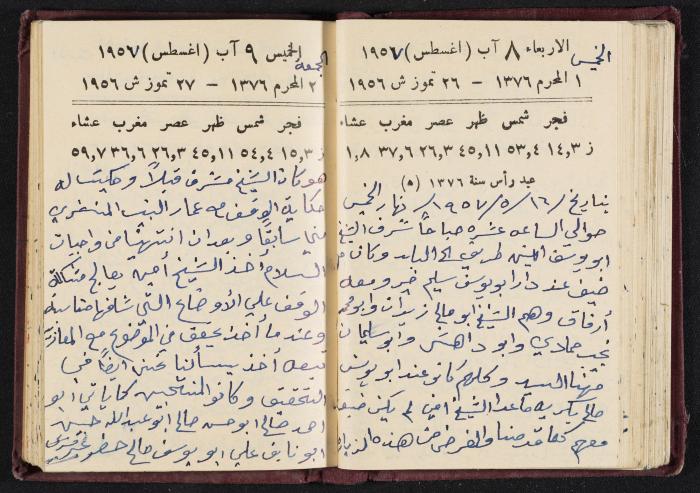 الخميس
الاربعاء ٨ آب (اغسطس) ١٩٥٧
١ المحرم ١٣٧٦ - ٢٦ تموز ش ١٩٥٦
فجر شمس ظهر عصر مغرب عشاء
ز ١٤,٣ ٥٣,٤ ٤٥,١١ ٢٦,٣ ٣٧,٦ ١,٨
عيد رأس سنة ١٣٧٦ (٥)
بتاريخ /١٦/٥/١٩٥٧/ نهار الخميس
حوالي الساعه عشره صباحاً شرف الشيخ
ابو يوسف امين طريف الى البلد وكان
ضيف عند دار ابو يوسف سليم خير ومعه
أرفاق وهم الشيخ ابو صالح زيدان وابو محمد
نجيب حمادي وابو داهش وابو سليمان
مهنا السيد وكلهم كانو عند ابو يوسف
صالح بكريه ما عدا الشيخ امين لم يكن ضيف
معهم والفرض من هذه الزياره
الجمعة
الخميس ٩ آب (اغسطس) ١٩٥٧
٢ المحرم ١٣٧٦ - ٢٧ تموز ش ١٩٥٦
فجر شمس ظهر عصر مغرب عشاء
ز ١٥,٣ ٥٤,٤ ٤٥,١١ ٢٦,٣ ٣٦,٦ ٥٩,٧
هو كان الشيخ مشرف قبلاً وحكيت له
حكاية الوقف مع عمار البيت
مني سابقاً وبعد ان انتهينا من واجبات
السلام أخذ الشيخ أمين يعالج مشكلة
الوقف على الأوضاع التي
وعندما أخذ يحقق في الموضوع مع
أخذ يسألنا نحن ايضاً في
التحقيق وكانو المنتخبين كما يأتي ابو
احمد صالح ابو حسن صالح ابو عبدالله حسين
ابو نايف علي ابو يوسف صالح حضر